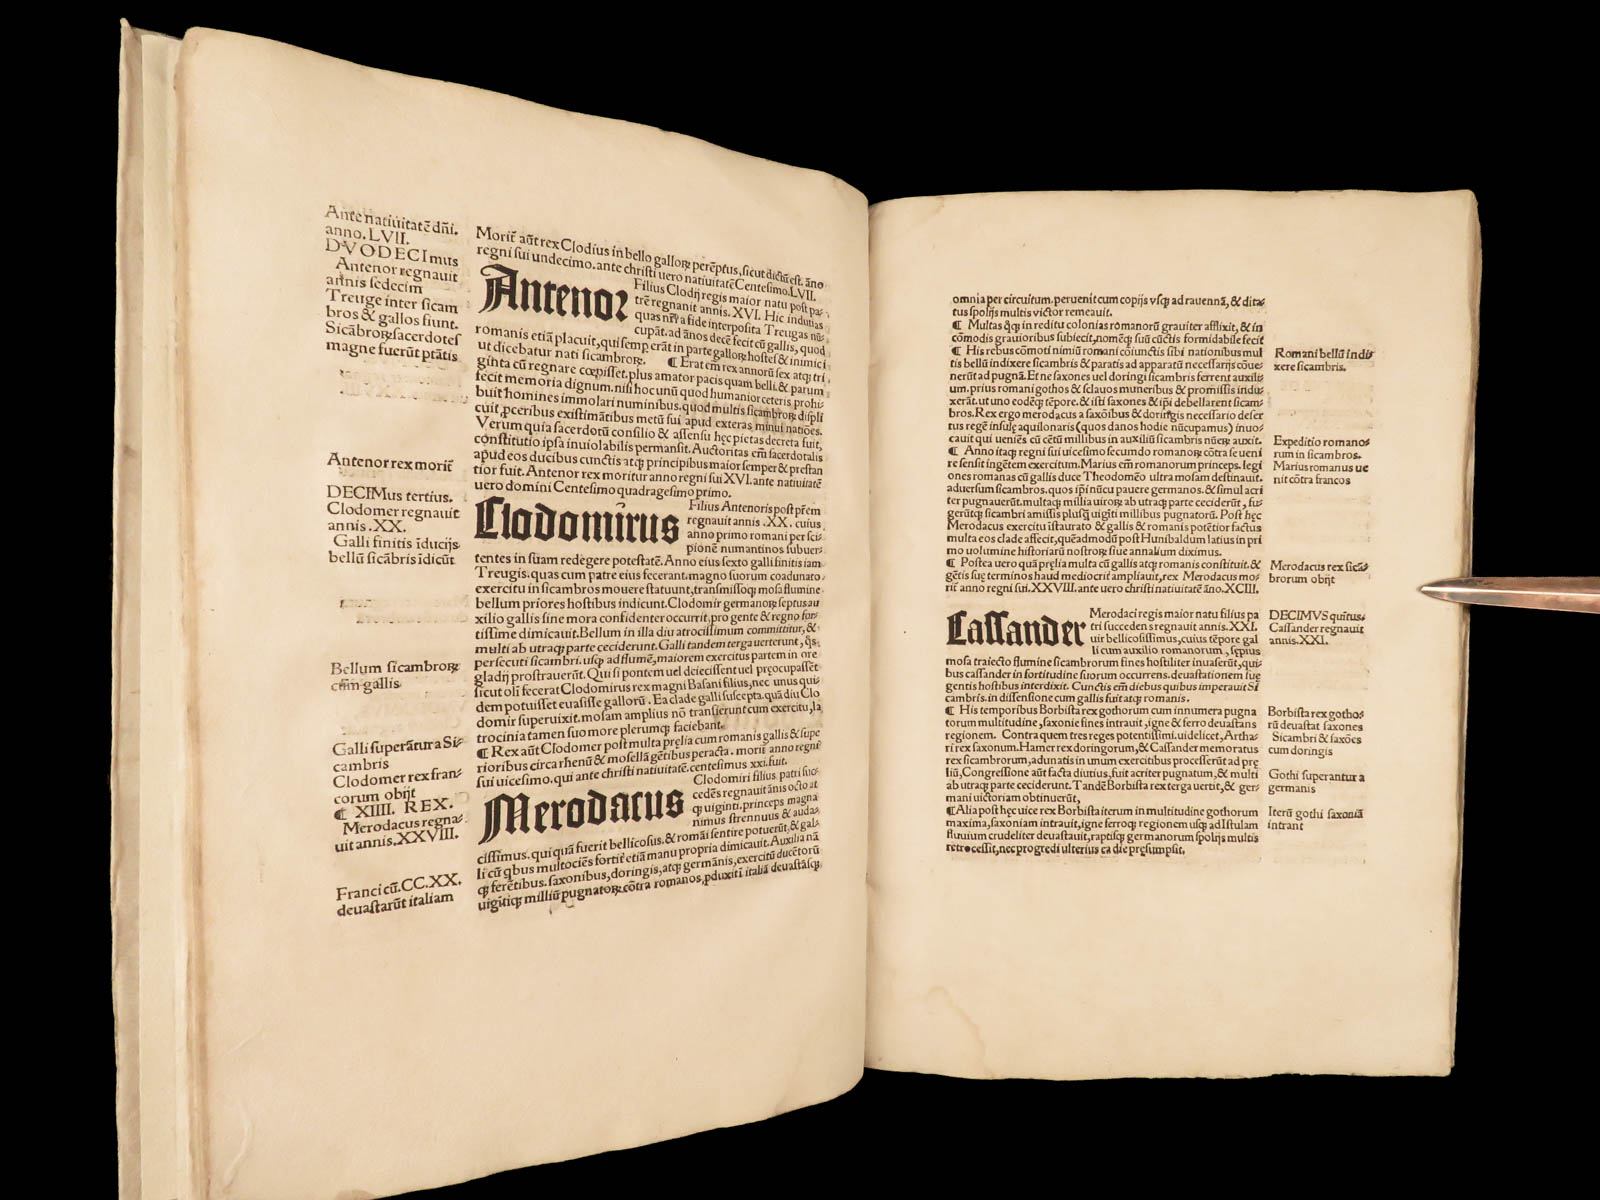 Ante natiuitatē dn̄i.
anno. LVII.
DVODECImus
Antenor regnauit
annis sedecim
Treuge inter sicam
bros & gallos fiunt.
Sicābroꝝ sacerdotes
magne fuerūt ptātis
Antenor rex morit̄
DECIMus tertius.
Clodomer regnauit
annis .XX.
Galli finitis īducijs
bellū sicābris īdicūt
Bellum sicambroꝝ
cūm gallis
Galli superātur a Si-
cambris
Clodomer rex fran-
corum obijt
¶ XIIII. REX.
Merodacus regna-
uit annis. XXVIII.
Franci cū. CC.XX.
deuastarūt italiam
Morit̄ aūt rex Clodius in bello galloꝝ perēptus, sicut dictū est. āno
regni sui undecimo. ante christi uero natiuitatē Centesimo. LVII.
Antenor
Filius Clodij regis maior natu post pa-
trē regnauit annis. XVI. Hic indutias
quas nr̄i a fide interposita Treugas nū-
cupāt. ad ānos decē fecit cū gallis, quod
romanis etiā placuit, qui semp erāt in parte galloꝝ hostes & inimici
ut dicebatur nati sicambroꝝ. ¶ Erat em̄ rex annorū sex atqꝫ tri
ginta cū regnare cœpisset. plus amator pacis quam belli, & parum
fecit memoria dignum. nisi hoc unū quod humanior ceteris prohi
buit homines immolari numinibus. quod multis sicambroꝝ displi
cuit, ꝓceribus existimātibus metū sui apud exteras minui natiōes.
Verum quia sacerdotū consilio & assensu hęc pietas decreta fuit,
constitutio ipsa inuiolabilis permansit. Auctoritas em̄ sacerdotalis
apud eos ducibus cunctis atqꝫ principibus maior semper & prestan
tior fuit. Antenor rex moritur anno regni sui XVI. ante natiuitatē
uero domini Centesimo quadragesimo primo.
Clodomirus
Filius Antenoris post pr̄em
regnauit annis .XX. cuius
anno primo romani per sci-
pionē numantinos subuer-
tentes in suam redegere potestatē. Anno eius sexto galli finitis iam
Treugis. quas cum patre eius fecerant. magno suorum coadunato
exercitu in sicambros mouere statuunt, transmissoqꝫ mosa flumine
bellum priores hostibus indicunt. Clodomir germanoꝝ septus au
xilio gallis sine mora confidenter occurrit, pro gente & regno for-
tissime dimicauit. Bellum in illa diu atrocissimum committitur, &
multi ab utraqꝫ parte ceciderunt. Galli tandem terga uerterunt, q̄s
persecuti sicambri. usqꝫ ad flumē, maiorem exercitus partem in ore
gladij prostrauerūt. Qui si pontem uel deiecissent uel pręocupassēt
sicut oli fecerat Clodomirus rex magni Basani filius, nec unus qui-
dem potuisset euasisse gallorū. Ea clade galli suscepta. quā diu Clo
domir superuixit. mosam amplius nō transierunt cum exercitu, la
trocinia tamen suo more plerumqꝫ faciebant.
¶ Rex aūt Clodomer post multa pręlia cum romanis gallis & supe
rioribus circa rhenū & mosellā gētibus peracta. morit̄ anno regni
sui uicesimo. qui ante christi natiuitatē. centesimus xxi. fuit.
Merodacus
Clodomiri filius, patri suc-
cedēs regnauit ānis octo at
qꝫ uiginti. princeps magna
nimus strennuus & auda-
cissimus. qui quā fuerit bellicosus, & romāi sentire potuerūt, & gal-
li cū q̄bus multociēs fortit̄ etiā manu propria dimicauit. Auxilia nā
qꝫ ferētibus. saxonibus, doringis, atqꝫ germanis, exercitū ducētorū
uigītiqꝫ milliū pugnatoꝝ cōtra romanos, ꝓduxit ī italiā deuastāsqꝫ
omnia per circuitum. peruenit cum copijs vsqꝫ ad rauennā, & dita-
tus spolijs multis victor remeauit.
¶ Multas q̄qꝫ in reditu colonias romanorū grauiter afflixit, & in
cōmodis grauioribus subiecit, nomēqꝫ suū cūctis formidabile fecit
¶ His rebus cōmoti nimiū romani cōiunctis sibi nationibus mul
tis bellū indixere sicambris & paratis ad apparatū necessarijs cōue-
nerūt ad pugnā. Et ne saxones uel doringi sicambris ferrent auxili-
um. prius romani gothos & sclauos muneribus & promissis indu-
xerāt. ut uno eodēqꝫ tēpore. & isti saxones & ip̄i debellarent sicam-
bros. Rex ergo merodacus a saxōibus & doringis necessario deser
tus regē insulę aquilonaris (quos danos hodie nūcupamus) inuo-
cauit qui ueniēs cū cētū millibus in auxiliū sicambris nūeꝝ auxit.
¶ Anno itaqꝫ regni sui uicesimo secundo romanoꝝ cōtra se ueni
re sensit ingētem exercitum. Marius em̄ romanorum princeps. legi
ones romanas cū gallis duce Theodomēo ultra mosam destinauit.
aduersum sicambros. quos ip̄i nūcu pauere germanos. & simul acri
ter pugnauerūt. multaqꝫ millia uiroꝝ ab utraqꝫ parte ceciderūt, fu-
gerūtqꝫ sicambri amissis plusqꝫ uigīti millibus pugnatorū. Post hęc
Merodacus exercitu īstaurato & gallis & romanis potētior factus
multa eos clade affecit, quēadmodū post Hunibaldum latius in pri
mo uolumine historiarū nostroꝝ siue annalium diximus.
¶ Postea uero quā pręlia multa cū gallis atqꝫ romanis constituit. &
gētis suę terminos haud mediocrit̄ ampliauit, rex Merodacus mo-
rit̄ anno regni sui. XXVIII. ante uero christi natiuitatē āno. XCIII.
Cassander
Merodaci regis maior natu filius pa
tri succedens regnauit annis. XXI.
uir bellicosissimus, cuius tēpore gal
li cum auxilio romanorum, sępius
mosa traiecto flumine sicambrorum fines hostiliter inuaserūt, qui-
bus cassander in fortitudine suorum occurrens. deuastationem suę
gentis hostibus interdixit. Cunctis em̄ diebus quibus imperauit Si
cambris. in dissensione cum gallis fuit atqꝫ romanis.
¶ His temporibus Borbista rex gothorum cum innumera pugna
torum multitudine, saxonie fines intrauit, igne & ferro deuastans
regionem. Contra quem tres reges potentissimi. uidelicet, Artha-
ri rex saxonum. Hamer rex doringorum, & Cassander memoratus
rex sicambrorum, adunatis in unum exercitibus processerūt ad prę
liū, Congressione aūt facta diutius, fuit acriter pugnatum, & multi
ab utraqꝫ parte ceciderunt. Tandē Borbista rex terga uertit, & ger-
mani uictoriam obtinuerūt,
¶ Alia post hęc uice rex Borbista iterum in multitudine gothorum
maxima, saxoniam intrauit, igne ferroqꝫ regionem usqꝫ ad Istulam
fluuium crudeliter deuastauit, raptisqꝫ germanorum spolijs multis
retrocessit, nec progredi ulterius ea die pręsumpsit,
Romani bellū indi-
xere sicambris.
Expeditio romano-
rum in sicambros.
Marius romanus ue
nit cōtra francos
Merodacus rex sicā-
brorum obijt
DECIMVS quītus.
Cassander regnauit
annis. XXI.
Borbista rex gotho-
rū deuastat saxones
Sicambri & saxōes
cum doringis
Gothi superantur a
germanis
Iterū gothi saxoniā
intrant